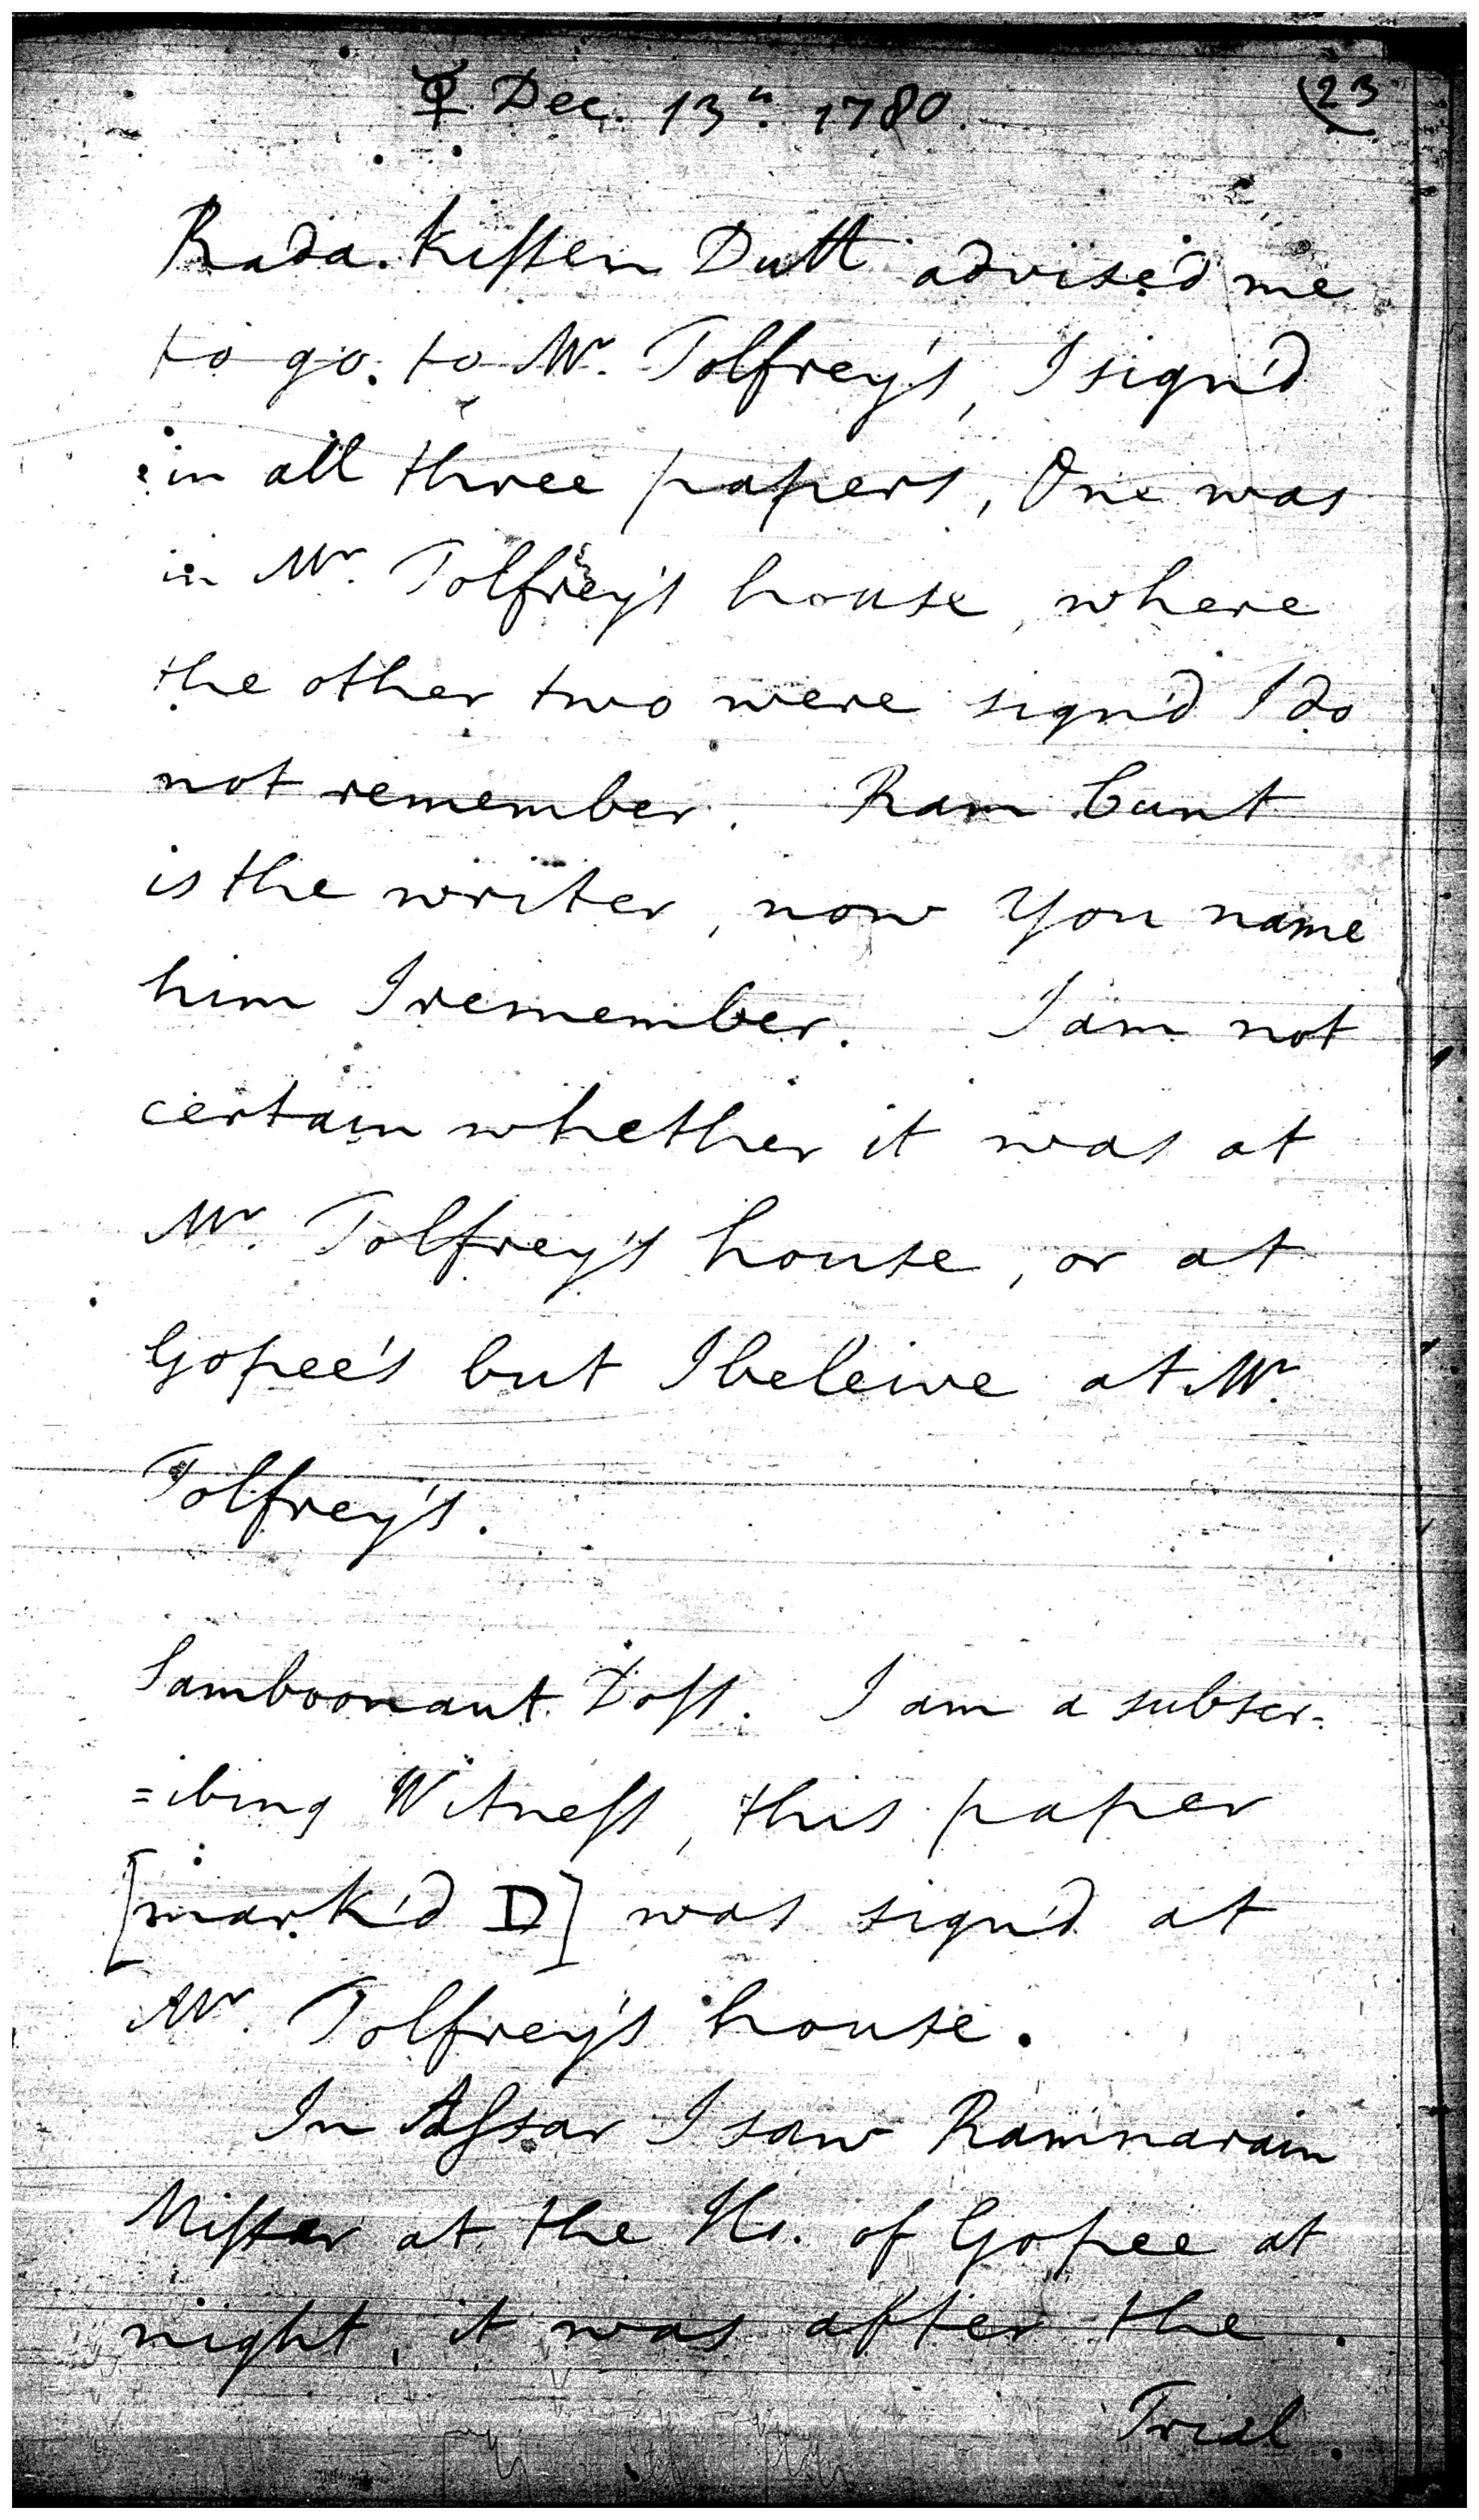 ☿ Dec. 13th. 1780.
(23
Rada. Kissen Dutt advised me
to go. to Mr. Tolfrey's, I sign'd
in all three papers, One was
in Mr. Tolfrey's house, where
the other two were sign'd I do
not remember. Ram Cunt
is the writer, now you name
him I remember. I am not
certain whether it was at
Mr. Tolfrey's house, or at
Gopee's but I beleive at Mr.
Tolfrey's.
Samboonaut Doss. I am a subscr-
=ibing Witness, this paper
[mark'd D] was sign'd at
Mr. Tolfrey's house.
In Assar I saw Ramnarain
Misser at the Ho. of Gopee at
night, it was after the
Trial.